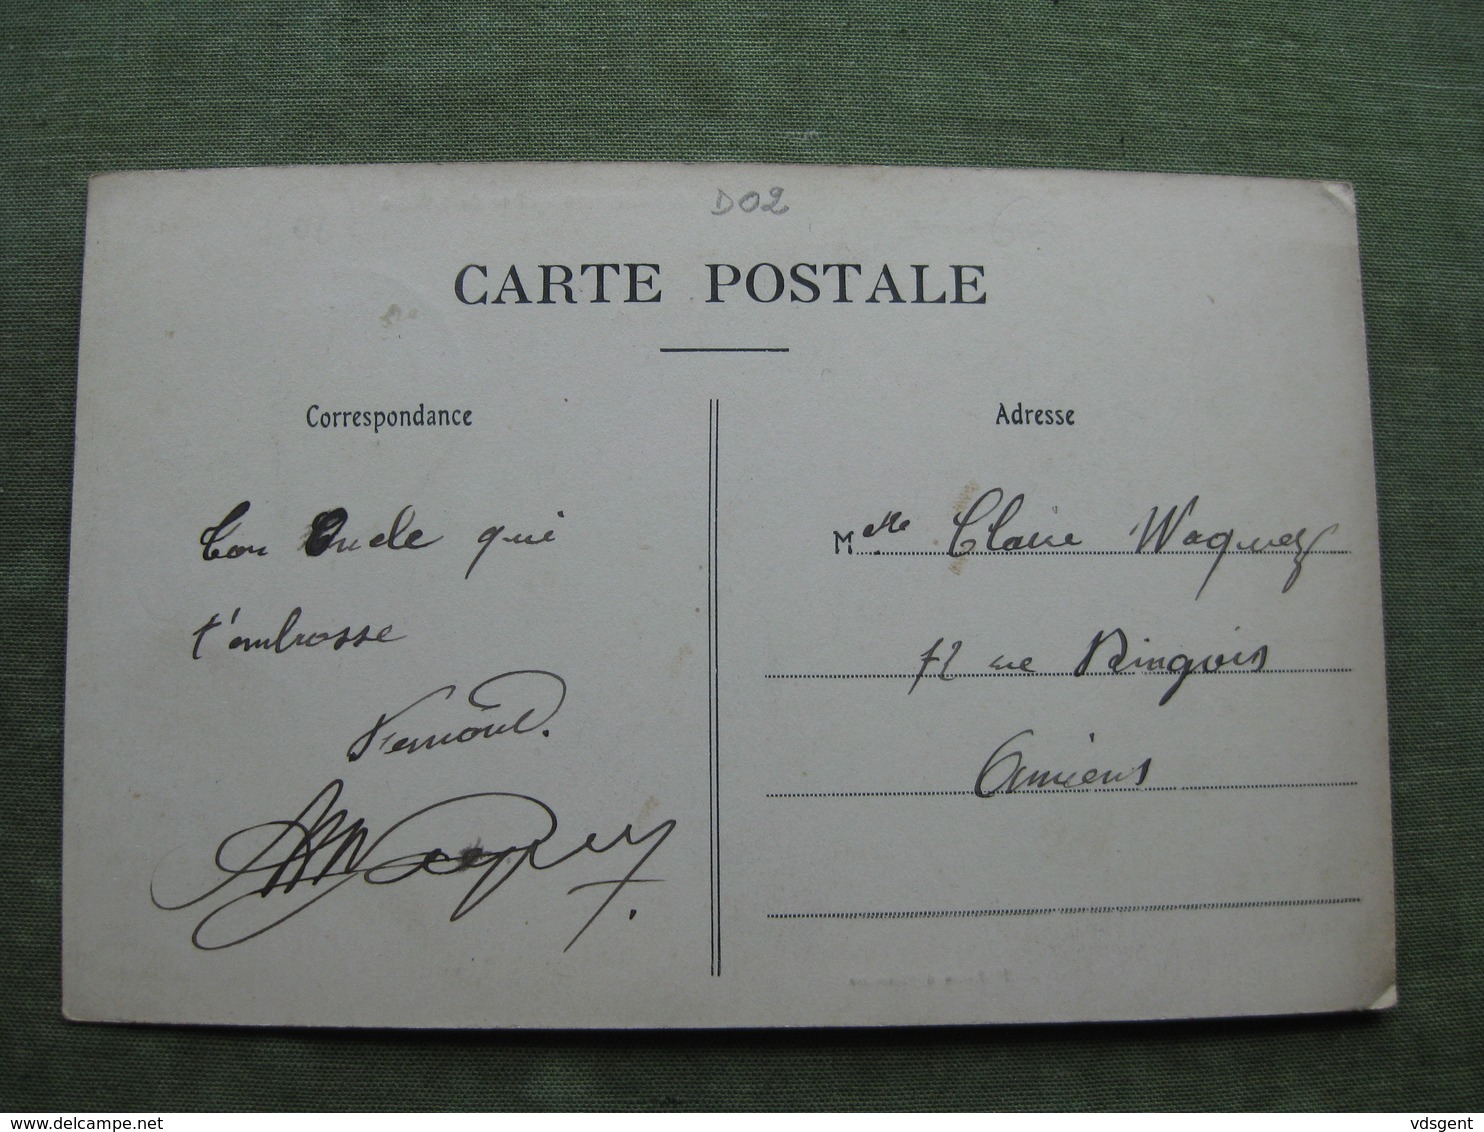 D02
CARTE POSTALE
Correspondance
Ton Oncle qui
t'embrasse
Fernand.
Adresse
Melle Claire Waquez
72 rue Ringois
Amiens
vdsgent